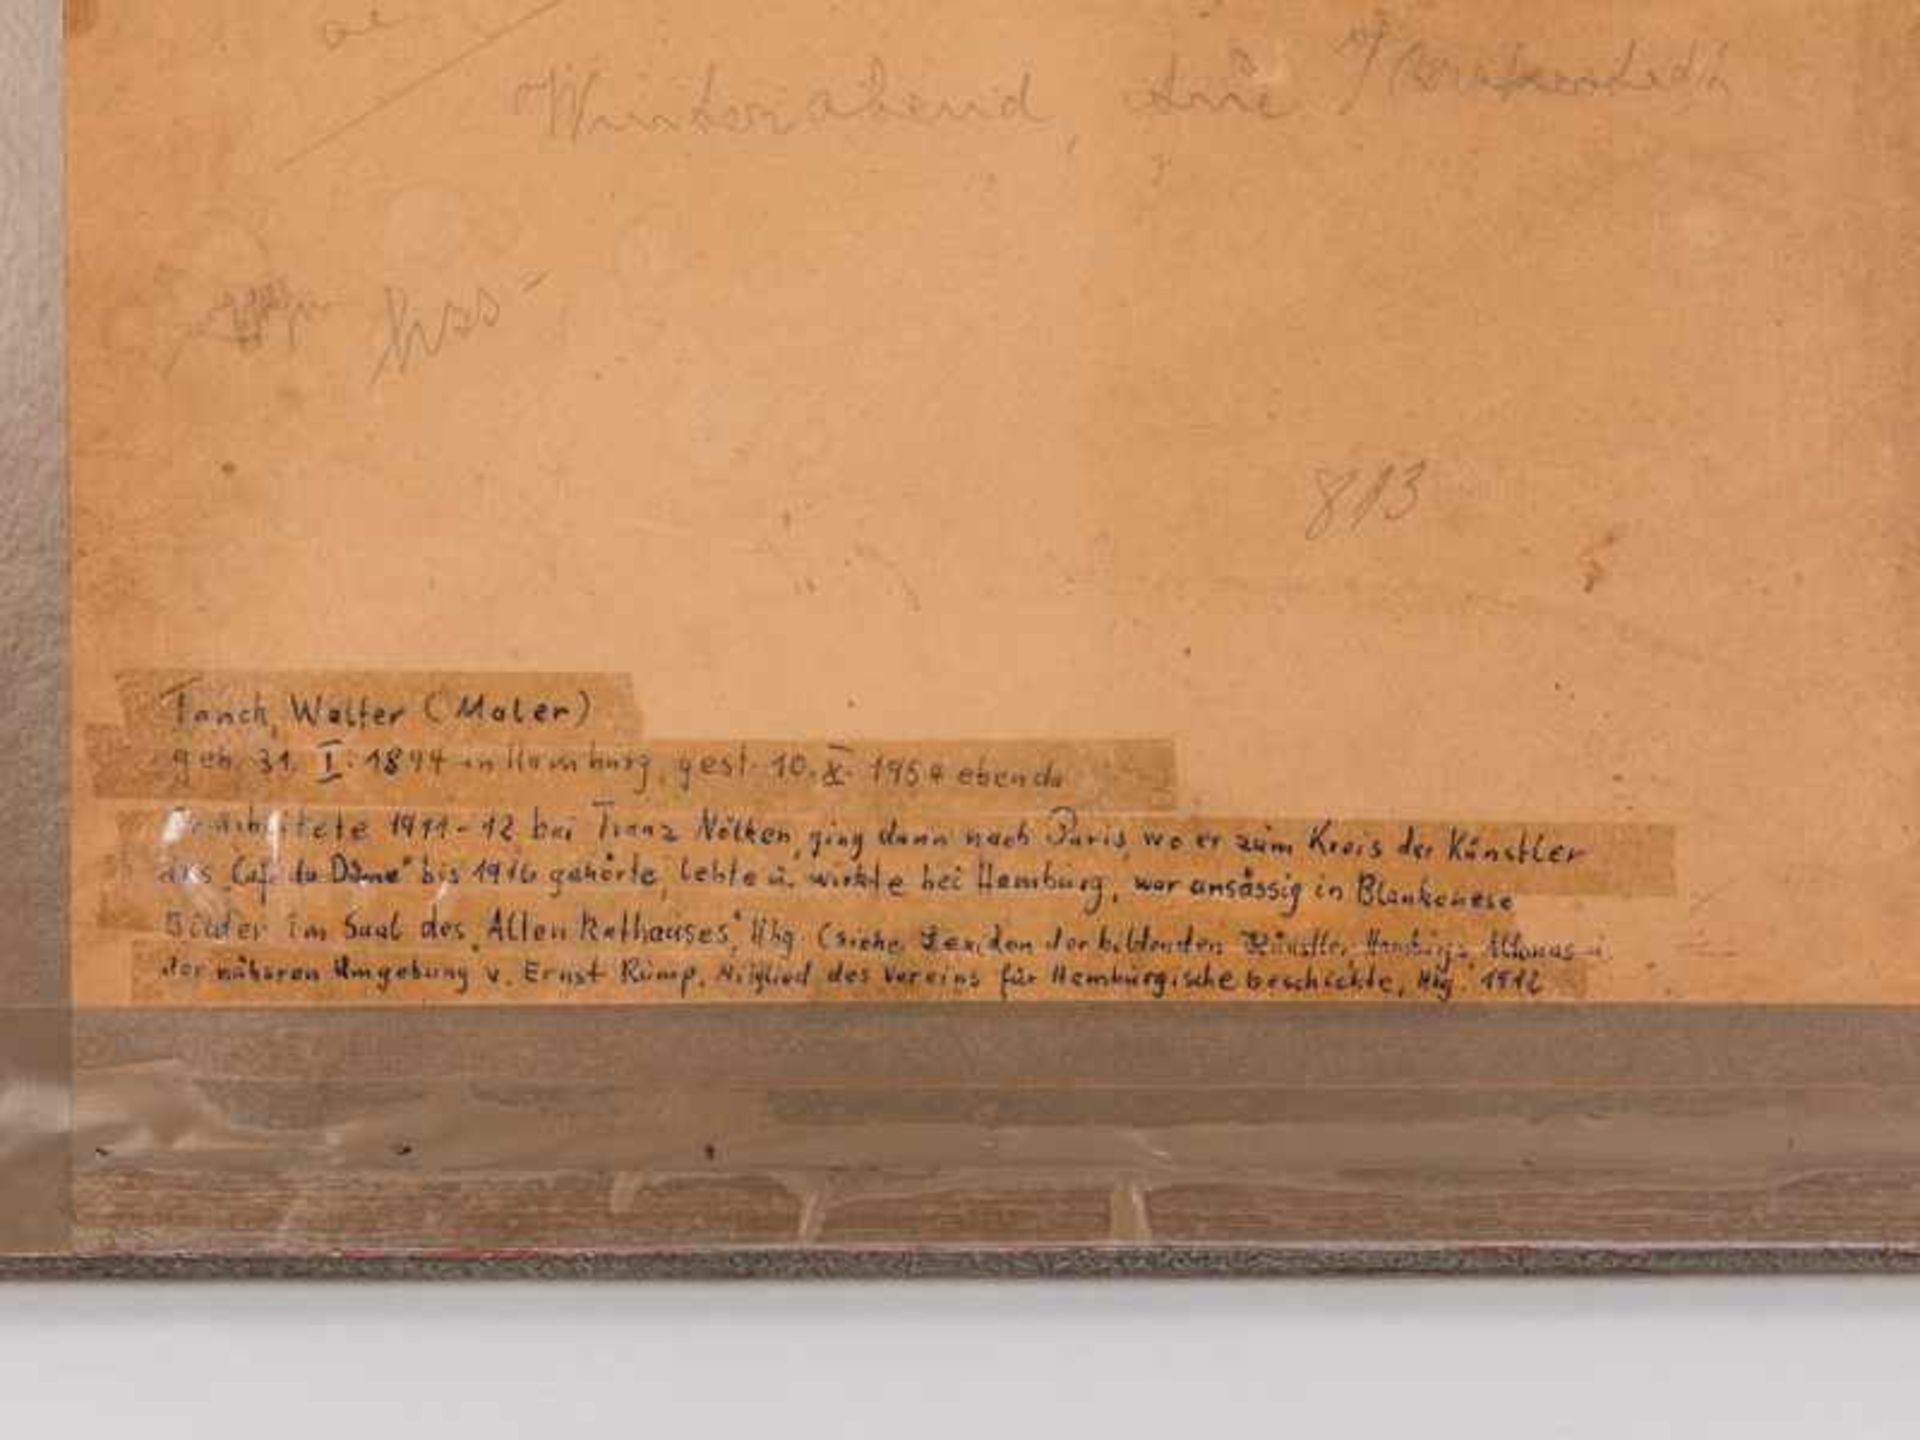 Winterabend,
813
Tanck, Walter (Maler)
geb. 31. I. 1894 in Hamburg, gest. 10. X. 1954 ebenda
Er arbeitete 1911-12 bei Franz Nölken, ging dann nach Paris, wo er zum Kreis der Künstler
des „Café du Dôme" bis 1914 gehörte, lebte u. wirkte bei Hamburg, war ansässig in Blankenese
Bilder im Saal des „Alten Rathauses", Hbg. (siehe Lexikon der bildenden Künstler Hamburgs, Altonas u.
der näheren Umgebung v. Ernst Rump, Mitglied des Vereins für Hamburgische Geschichte, Hbg. 1912